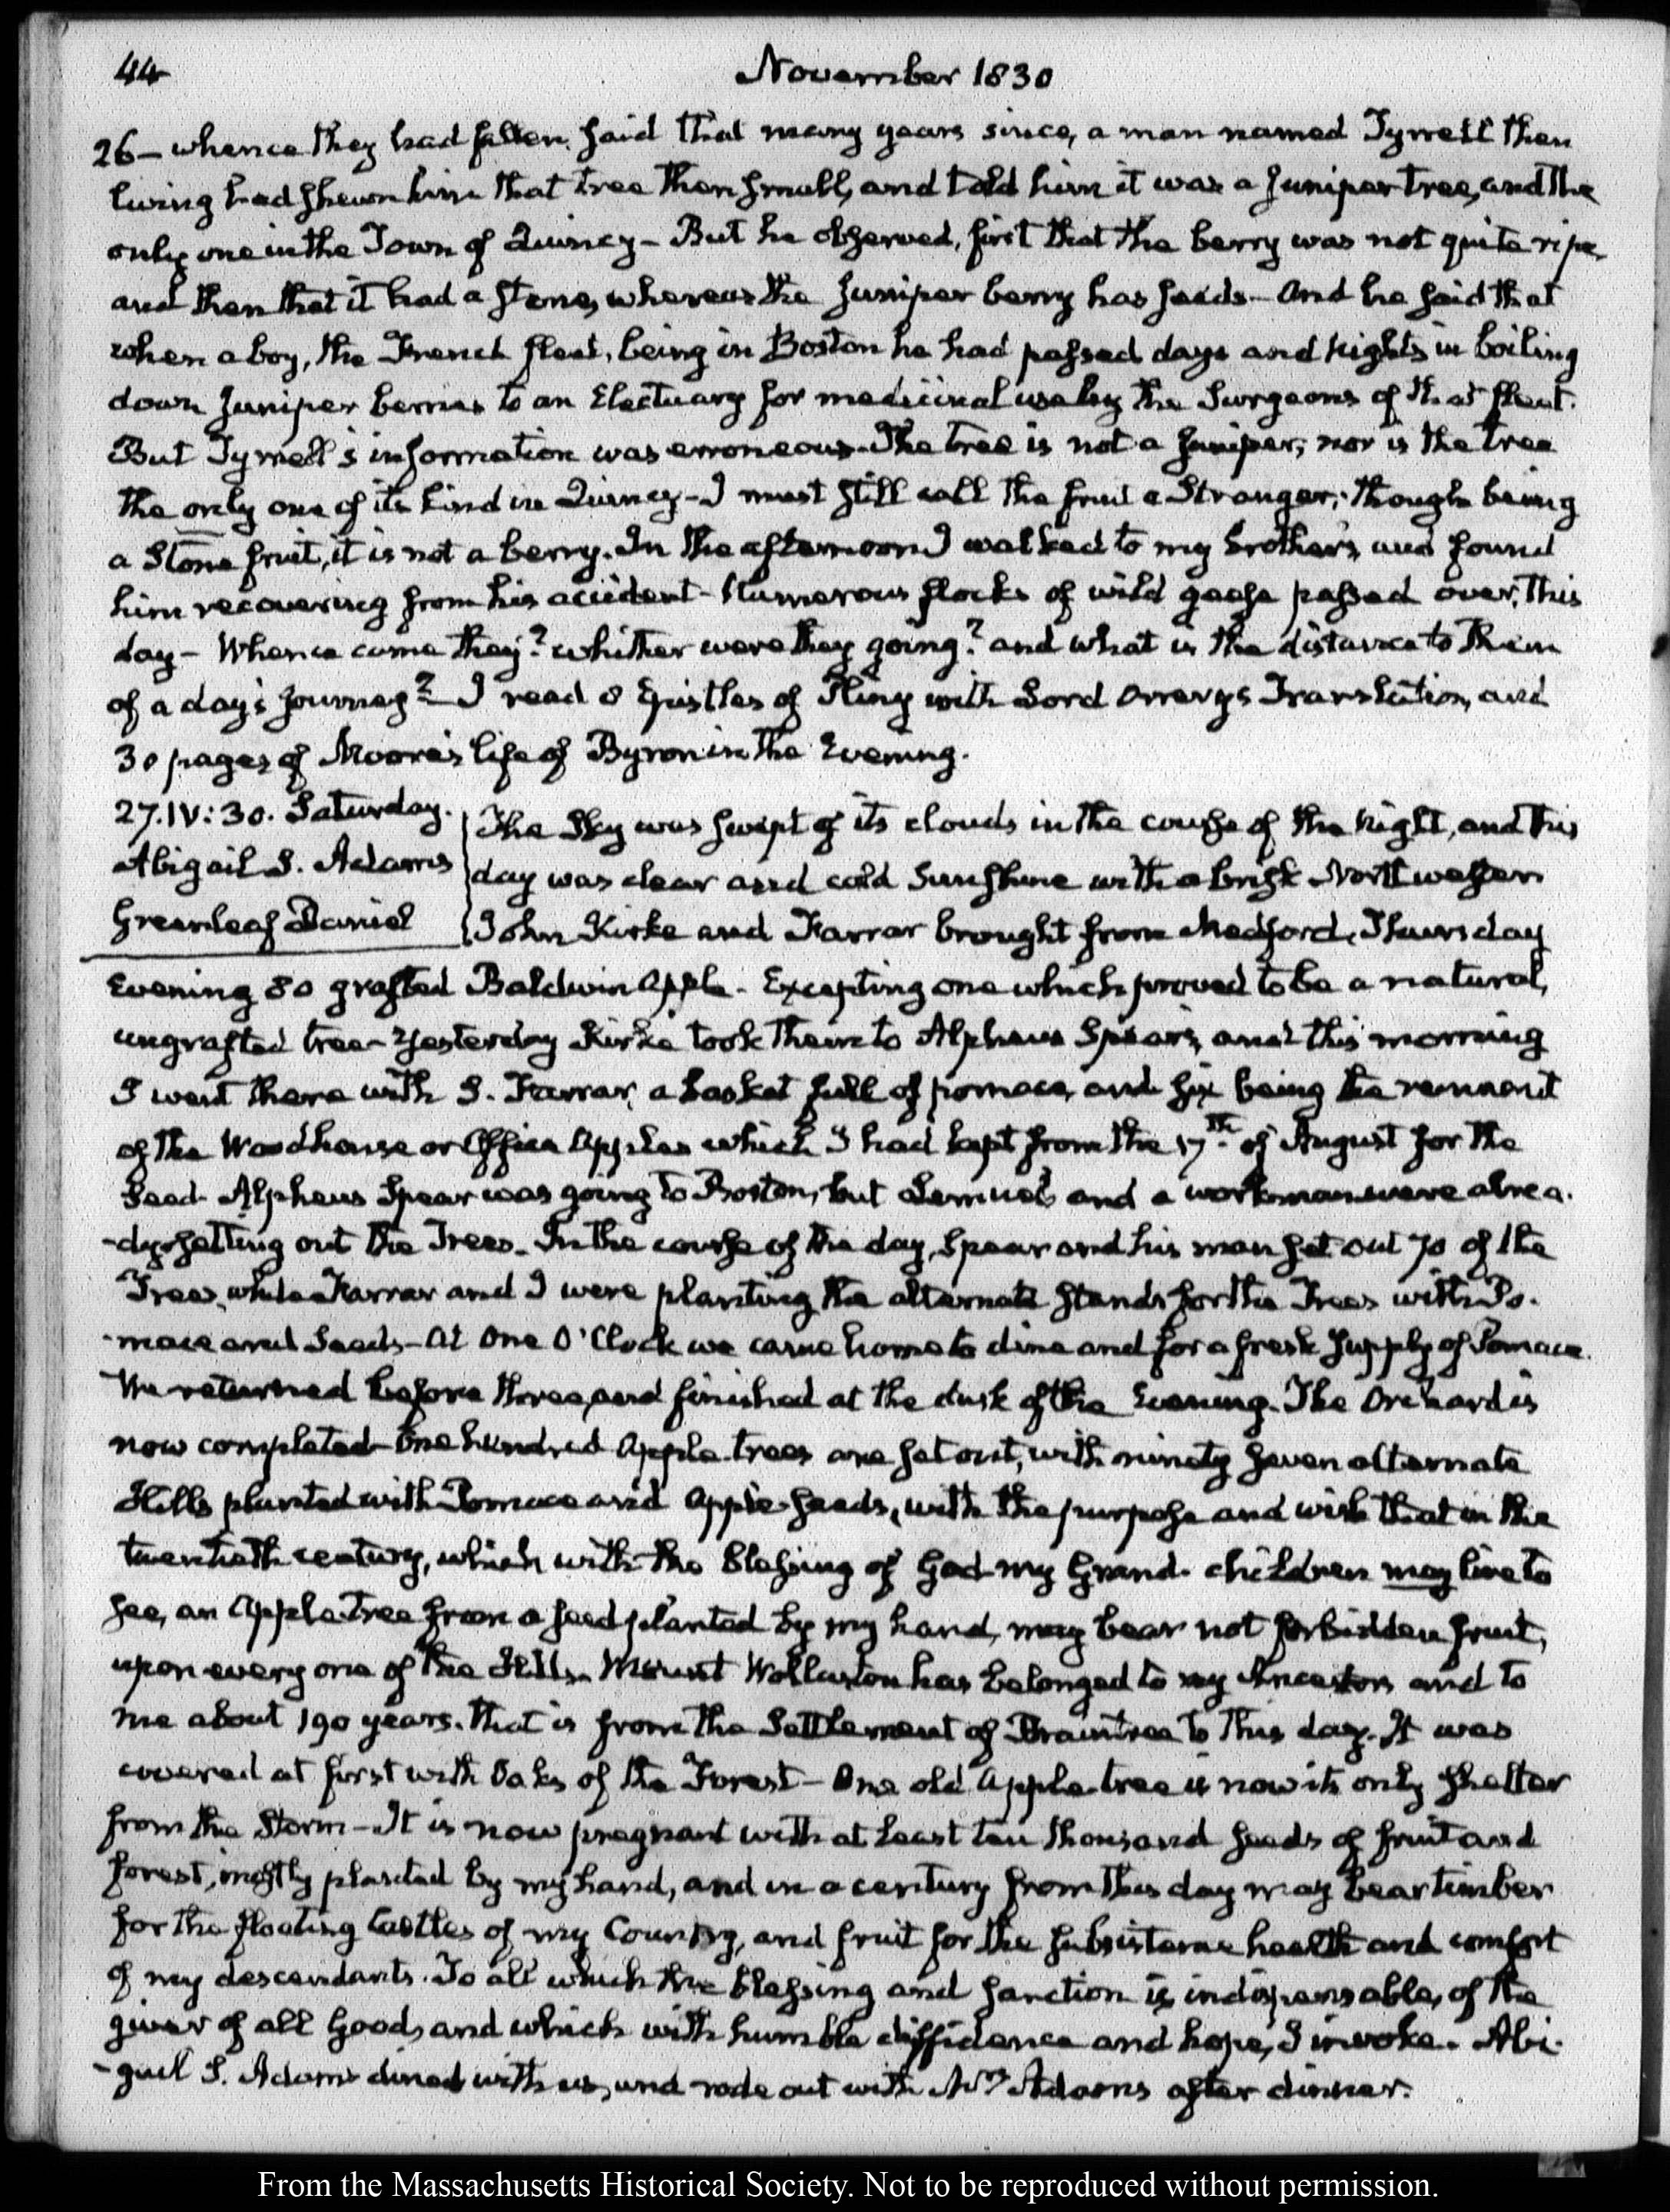 44 November 1830
26 — whence they had fallen said that many years since, a man named Tyrrell then
living had shewn him that tree then small, and told him it was a Juniper tree, and the
only one in the Town of Quincy — But he observed, first that the berry was not quite ripe,
and then that it had a stone, whereas the Juniper berry has seeds — And he said that
when a boy, the French fleet, being in Boston he had passed days and nights in boiling
down Juniper berries to an Electuary for medicinal use by the Surgeons of that fleet.
But Tyrrell's information was erroneous. The tree is not a Juniper; nor is the tree
the only one of its kind in Quincy — I must still call the fruit a Stranger; though being
a Stone fruit, it is not a berry. In the afternoon I walked to my brother's, and found
him recovering from his accident — Numerous flocks of wild geese passed over, this
day — Whence came they? whither were they going? and what is the distance to them
of a day's journey? — I read 8 Epistles of Pliny with Lord Orrery's Translation, and
30 pages of Moore's life of Byron in the Evening.
27. IV: 30. Saturday.
Abigail S. Adams
Greenleaf Daniel
The Sky was swept of its clouds in the course of the Night, and this
day was clear and cold Sunshine with a brisk Northwester
John Kirke and Farrar brought from Medford, Thursday
Evening 80 grafted Baldwin Apple — Excepting one which proved to be a natural,
ungrafted tree — Yesterday Kirke took them to Alpheus Spear's, and this morning
I went there with S. Farrar, a basket full of pomace, and six being the remnant
of the Woodhouse or Office Apples which I had kept from the 17th. of August for the
Seed. Alpheus Spear was going to Boston, but Lemuel and a workman were alrea-
-dy setting out the Trees. In the course of the day, Spear and his man set out 70 of the
Trees, while Farrar and I were planting the alternate stands for the Trees with Po-
-mace and Seeds — At One O'Clock we came home to dine and for a fresh supply of Pomace.
We returned before three, and finished at the dusk of the Evening. The Orchard is
now completed — One hundred Apple-trees are set out, with ninety seven alternate
Hills planted with Pomace and Apple-seeds, with the purpose and wish that in the
twentieth century, which with the blessing of God my Grand-children may live to
see, an Apple-tree from a seed planted by my hand, may bear not forbidden fruit,
upon every one of the Hills. Mount Wollaston has belonged to my Ancestors and to
me about 190 years. That is from the Settlement of Braintree to this day. It was
covered at first with Oaks of the Forest — One old Apple-tree is now its only shelter
from the Storm — It is now pregnant with at least ten thousand seeds of fruit and
forest, mostly planted by my hand, and in a century from this day may bear timber
for the floating Castles of my Country, and fruit for the subsistence health and comfort
of my descendants. To all which the blessing and sanction is indispensable, of the
giver of all Good, and which with humble diffidence and hope, I invoke. Abi-
-gail S. Adams dined with us, and rode out with Mrs Adams after dinner.
From the Massachusetts Historical Society. Not to be reproduced without permission.